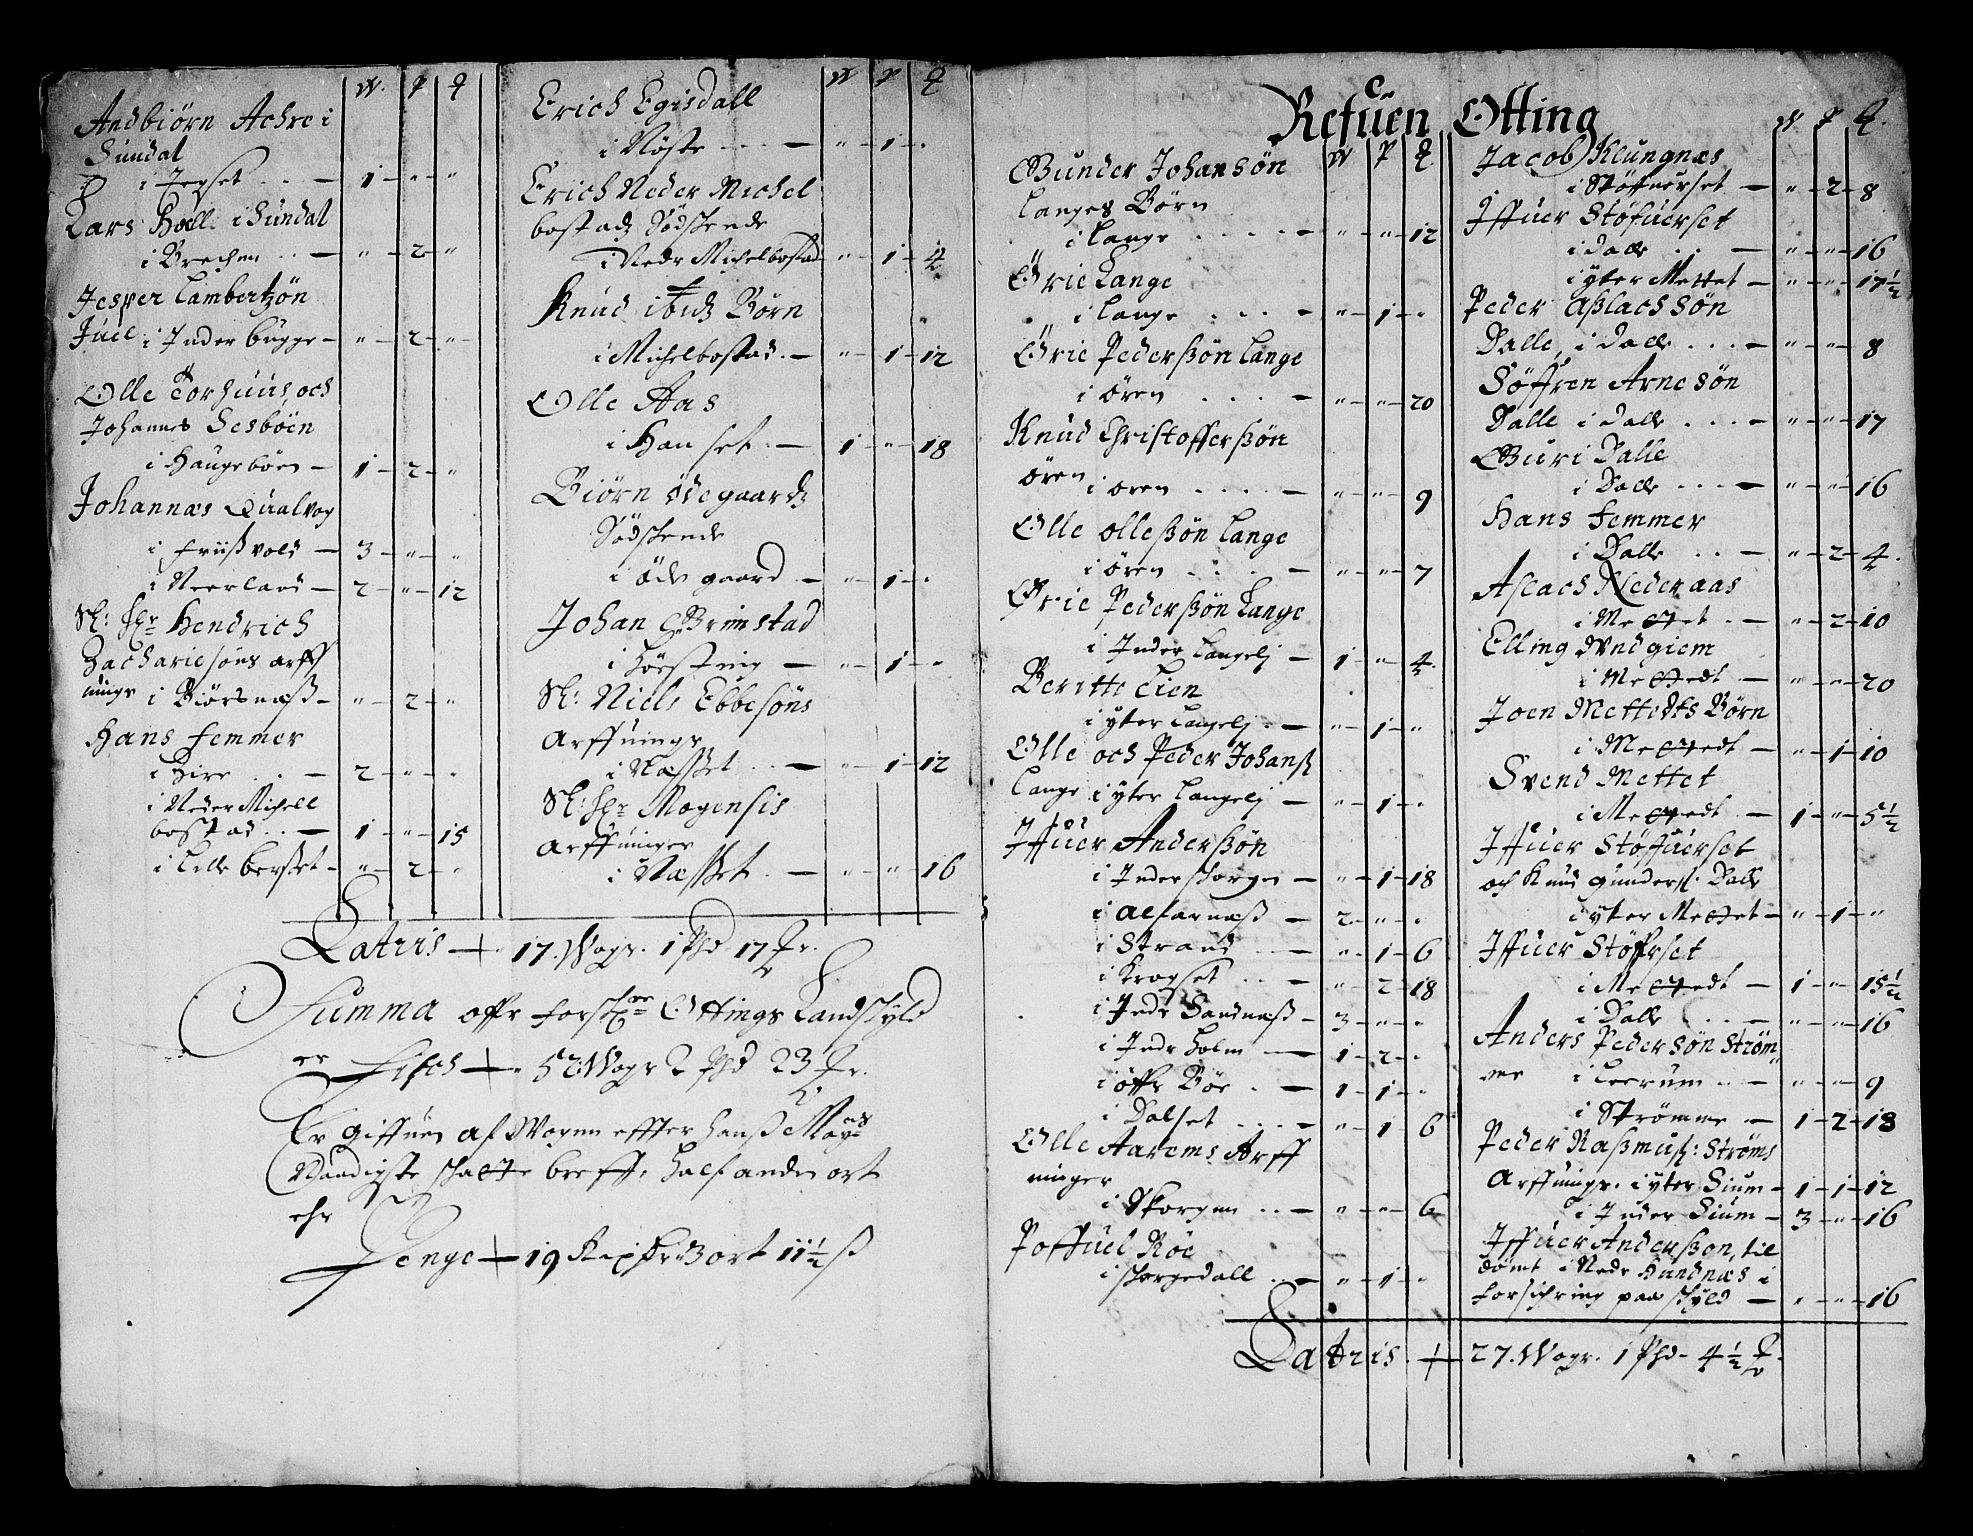 W. P ꝶ
Andbiörn Achre i
Sundal
i Jerset . . — 1 — " — "
Lars Hoell i Sundal
i Brechen . . — " — 2 — "
Jesper Lambertzön
Juel i Inder bugge — " — 2 — "
Olle Torhuus, och
Johannes Sesböen
i Haugeböen — 1 — 2 — "
Johannæs Qualvog
i friißvold — 3 — " — "
i Neerland — 2 — " — 12
Sl: Hr Hendrich
Zachariesøns arff
uinge i Biörsnæß — " — 2 — "
Hans Femmer
i Hire . . — 2 — " — "
i Neder Michell
bostad . . — 1 — " — 15
i Lille berset — " — 2 — "
W P ꝶ
Erich Egisdall
i Nöste . . . — " — 1 — "
Erich Neder Michel
bostads Södskende
i Nedr Michelbostad — " — 1 — 4
Knud ibids Börn
i Michelbostad . — " — 1 — 12
Olle Aas
i Hanset . — 1 — " — 18
Biörn Ödegaards
Södskende
i Öde gaard — " — 1 — "
Johan Grimstad
i Hörsting — " — 1 — "
Sl: Niels Ebbesöns
Arffuinge
i Næsset . . — " — 1 — 12
Sl: Hr Mogensis
Arffuinger
i Næsset . — " — " — 16
Latris — 17. Woger. 1 Pd 17 ꝶr.
Summa offr forschrne Ottings Landskyld
er Fisch — 52. Wogr 2 Pd 23 ꝶr.
Er giffuen af Wogen effter hanß Mayts
Naadigste schatte breff, half anden ort
ehr
Penge — 19 Rixdr 3 ort 11½ ß
Refuen Otting
W P ꝶ
Gunder Johansön
Langes Börn
i Lange . . . . — " — " — 12
Öric Lange
i Lange . . . — " — 1 — "
Öric Pederßön Lange
i ören . . . — " — " — 20
Knud Christofferßön
ören i ören . . . . — " — " — 9
Olle olleßön Lange
i ören . . . — " — " — 7
Öric Pederßön Lange
i Inder Langelj — 1 — " — 4
Beritte Lien
i yter Langelj . — " — 1 — "
Olle och Peder Johanß
Lange i yter Langelj — " — 1 — "
Iffuer Anderßön
i Inder schorgen — " — 1 — 18
i Alfarnæß — 2 — " — "
i Strand — " — 1 — 6
i Krogset . . — " — 2 — 18
i Indr Sandnæß — 3 — " — "
i Indr holm — 1 — 2 — "
i öffr Böe . — 1 — 1 — "
i Dalset . . . — " — 1 — 6
Olle Aarems Arff
uinger
i Skorgen . . — " — " — 6
Poffuel Röe
i schorgedall . . — " — 1 — "
W P ꝶ.
Jacob Klungnæs
i Stöfuerset — " — 2 — 8
Iffuer Stöfuerset
i Dalle . . — " — " — 16
i yter Mettet — " — " — 17½
Peder Aßlachsön
Dalle, i Dalle . . . — " — " — 8
Söffren Arnesön
Dalle i Dalle . . . — " — " — 17
Guri Dalle
i Dalle . . . — " — " — 16
Hans Femmer
i Dalle . . — " — 2 — 4.
Aslach Nederaas
i Mettet . — " — 2 — 10
Elling Vndgiem
i Mettedt . — " — " — 20
Joen Mettedts Börn
i Mettedt — " — 1 — 10
Svend Mettet
i Mettedt . — 1 — " — 5½
Iffuer Stöffuerset
och Knud Gunderß. Dalle
i yter Mettet — " — 1 — "
Iffuer Stöffrset
i Mettedt — 1 — " — 15½
i Dalle . . — " — " — 16
Anders Pedersön Ström
me i Leerum . . — " — " — 9
i Strömme — 1 — 2 — 18
Peder Raßmuß: Ströms
Arffuingr. i yter Sium — 1 — 1 — 12
i Inder Sium — 3 — " — 16
Iffuer Anderßon, til
dömt i Nedr Hundnæs i
forsichring paa skyld — " — " — 16
Latris . — 27. Wogr. 1 Pd — 4½ ꝶ.